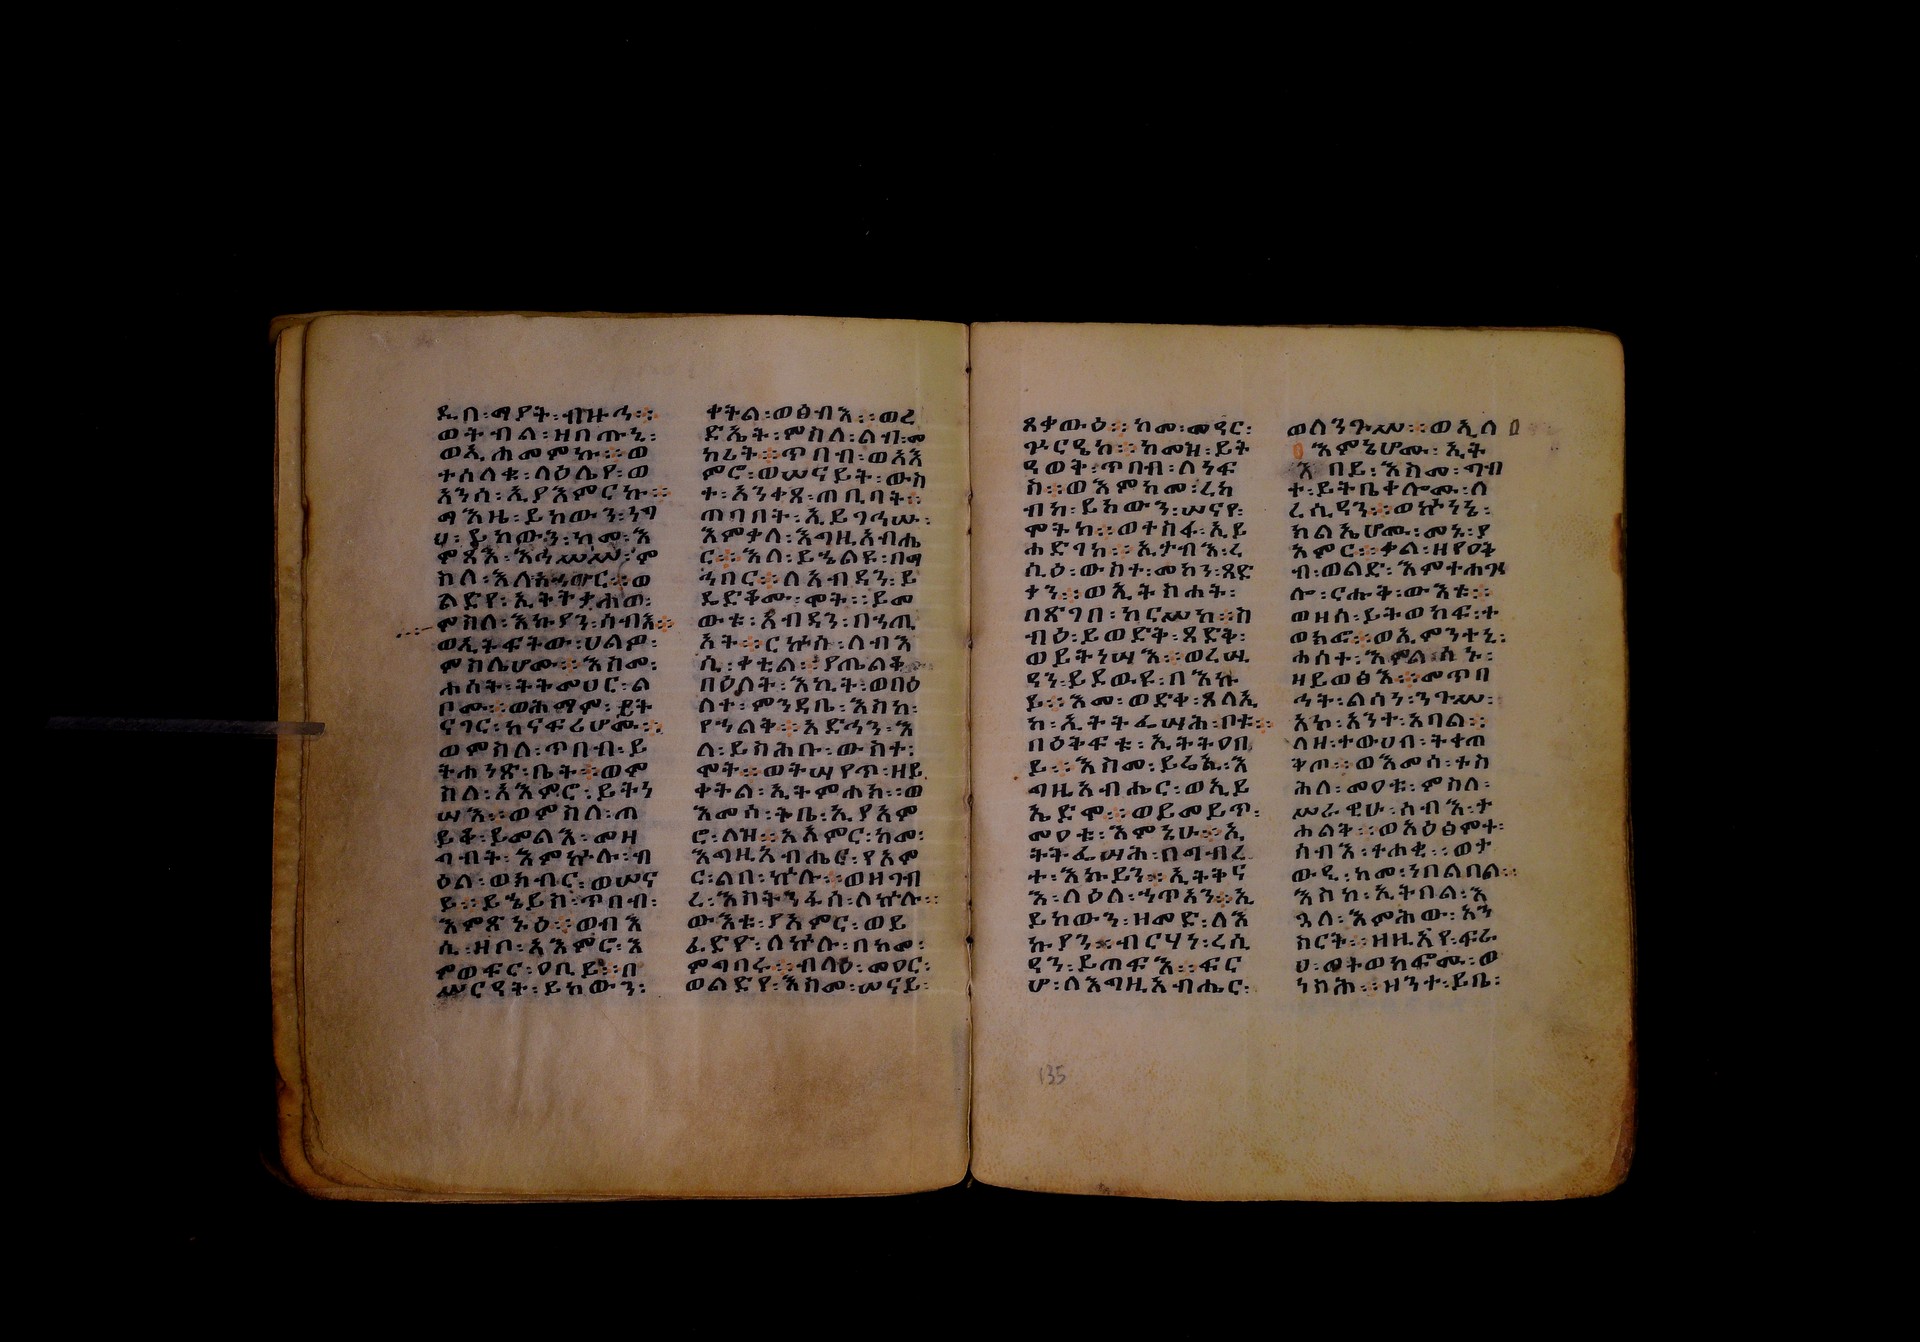 ዴበ፡ማያት፡ብዙኅ።
ወትብል፡ዘበጡኒ፡
ወኢሐመምኩ።ወ
ተሰለቁ፡ላዕሌየ፡ወ
አንሰ፡ኢያእምርኩ።
ማእዜ፡ይከውን፡ነግ
ሀ፡ይከውን፡ከመ፡እ
ምጻእ፡እኅሥሥ፡ም
ስለ፡እለአኀብር።ወ
ልድየ፡ኢትትቃሐወ፡
ምስለ፡እኩያን፡ሰብእ።
ወኢትፍትው፡ሀልዎ፡
ምስሌሆሙ።እስመ፡
ሐሰት፡ትትመሀር፡ል
ቦሙ።ወሕማም፡ይት
ናገር፡ከናፍሪሆሙ።
ወምስለ፡ጥበብ፡ይ
ትሐነጽ፡ቤት።ወም
ስለ፡አእምሮ፡ይትነ
ሣእ።ወምስለ፡ጠ
ይቅ፡ይመልእ፡መዛ
ግብት፡እምኵሉ፡ብ
ዕል፡ወክብር፡ወሠና
ይ።ይኄይስ፡ጥበብ፡
እምጽኑዕ።ወብእ
ሲ፡ዘቦ፡አእምሮ፡እ
ምወፍር፡ዐቢይ።በ
ሥርዓት፡ይከውን፡
ቀትል፡ወፅብእ።ወረ
ድኤት፡ምስለ፡ልብ፡መ
ከሪት።ጥበብ፡ወአእ
ምሮ፡ወሠናይት፡ውስ
ተ፡አንቀጸ፡ጠቢባት።
ጠባበት፡ኢይግኅሡ፡
እምቃለ፡እግዚአብሔ
ር።አለ፡ይኄልዩ፡በማ
ኅበር።ለአብዳን፡ይ
ዴድቆሙ፡ሞት።ይመ
ውቱ፡አብዳን፡በኃጢ
አት።ርኩስ፡ለብእ
ሲ፡ቀቲል።ያጤልቅ።
በዕለት፡እኪት፡ወበዕ
ለተ፡ምንዳቤ፡እስከ፡
የኀልቅ።አድኅን፡እ
ለ፡ይስሕቡ፡ውስተ፡
ሞት።ወትሣየጥ፡ዘይ
ቀትል፡ኢትምሐክ።ወ
እመሰ፡ትቤ፡ኢያአም
ሮ፡ለዝ።አእምር፡ከመ፡
እግዚአብሔር፡የአም
ር፡ልበ፡ኵሉ።ወዘገብ
ረ፡እስትንፋሰ፡ለኵሉ።
ውእቱ፡ያአምር፡ወይ
ፈድዮ፡ለኵሉ፡በከመ፡
ምግባሩ።ብላዕ፡መዐር፡
ወልድየ፡እስመ፡ሠናይ፡
ጸቃውዕ።ከመ፡መዳር፡
ጕርዔከ።ከመዝ፡ይት
ዓወቅ፡ጥበብ፡ለነፍ
ስ።ወእምከመ፡ረከ
ብከ፡ይከውን፡ሠናየ፡
ሞትከ።ወተስፋ፡ኢይ
ሐድገከ።ኢታብእ፡ረ
ሲዕ፡ውስተ፡መከን፡ጻድ
ቃን።ወኢትስሐት፡
በጽግበ፡ከርሥከ።ስ
ብዕ፡ይወድቅ፡ጻድቅ፡
ወይትነሣእ።ወረሢ
ዓን፡ይደዉዩ፡በእኩ
ይ።እመ፡ወድቀ፡ጸላኢ
ከ፡ኢትትፌሣሕ፡ቦቱ።
በዕትፍቱ፡ኢትትዐበ
ይ።እስመ፡ይሬኢ፡እ
ግዚአብሔር፡ወኢይ
ኤድሞ።ወይመይጥ፡
መዐቱ፡እምኔሁ።ኢ
ትትፌሣሕ፡በግብረ
ተ፡እኩይን።ኢትቅና
እ፡ላዕለ፡ኃጥአን።ኢ
ይከውን፡ዘመድ፡ለእ
ኩያን።ብርሃነ፡ረሲ
ዓን፡ይጠፍእ።ፍር
ሆ፡ለእግዚአብሔር፡
ወለንጉሥ።ወኢለ፩
፩እምኔሆሙ፡ኢት
እበይ፡እስመ፡ግብ
ተ፡ይትቤቀሎሙ፡ለ
ረሲዳን።ወኵነኔ፡
ክልኤሆሙ፡መኑ፡ያ
አምር።ቃል፡ዘየዐቅ
ብ፡ወልድ፡እምተሐጕ
ሎ፡ርሑቅ፡ውእቱ።
ወዘሰ፡ይትወከፍ፡ተ
ወክፎ።ወኢምንተኒ፡
ሐሰተ፡እምልሳኑ፡
ዘይወፅእ።መጥባ
ኅት፡ልሳነ፡ንጉሥ፡
አኮ፡አንተ፡አባል።
ለዘ፡ተውህበ፡ትቀጠ
ቅጦ።ወእመሰ፡ተስ
ሕለ፡መዐቱ፡ምስለ፡
ሥራዊሁ፡ሰብእ፡ታ
ሐልቅ።ወአዕፅምተ፡
ሰብእ፡ተሐቂ።ወታ
ውዒ፡ከመ፡ነበልባል።
እስከ፡ኢትበልዕ፡እ
ጓለ፡እምሕው፡አን
ስርት።ዘዚአየ፡ፍሬ
ሀ፡ወትወከፎሙ፡ወ
ነስሕ።ዘንተ፡ይቤ፡
135